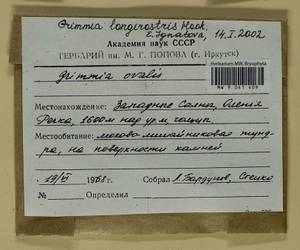 Grimmia longirostris Hook.
E. Ignatova, 14.I.2002
Академия наук СССР
ГЕРБАРИЙ им. М. Г. ПОПОВА (г. Иркутск)
Herbarium MW, Bryophyta
MW 9 041 409
Grimmia ovalis
Местонахождение: Западные Саяны, Оленья
Речка, 1600м над ур. м.
Местообитание: мохово-лишайниковая тунд-
ра, на поверхности камней
19/VI 1968г.
Собрал Л. Бардунов,
№ Определил